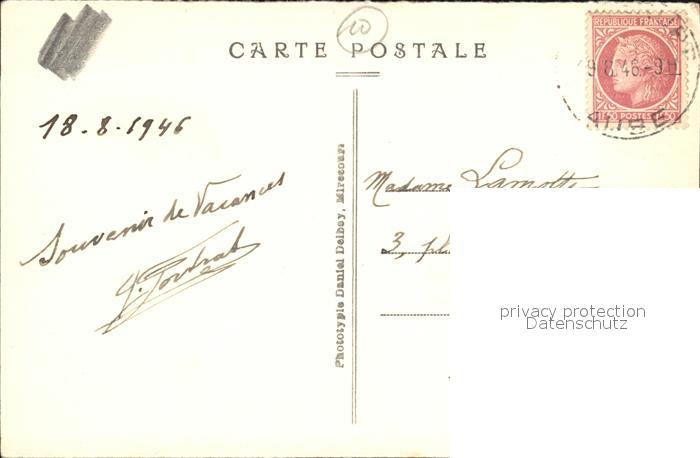 10
CARTE POSTALE
REPUBLIQUE FRANÇAISE
9.8.46.-9H
1F50 POSTES 1F50
18-8-1946
Souvenir de Vacances
Phototypie Daniel Delbey, Mirecourt
Madame Lamotte
3, pl
privacy protection
Datenschutz